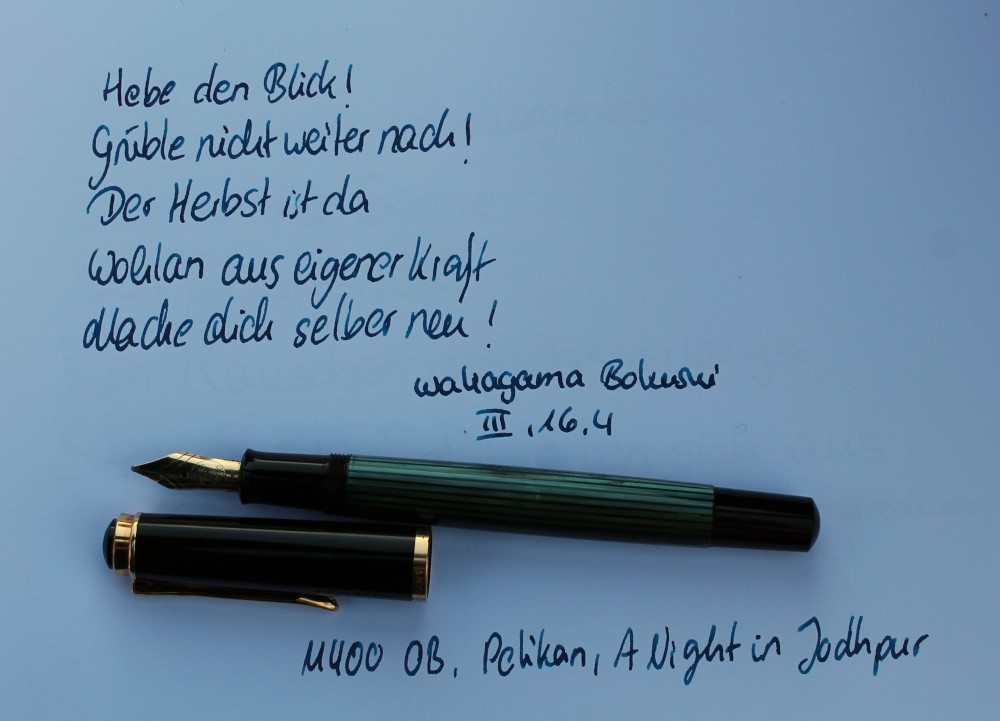 Hebe den Blick!
Grüble nicht weiter nach!
Der Herbst ist da
Wohlan aus eigener Kraft
Mache dich selber neu!
Wakayama Bokusui
III.16.4
M400 OB, Pelikan, A Night in Jodhpur